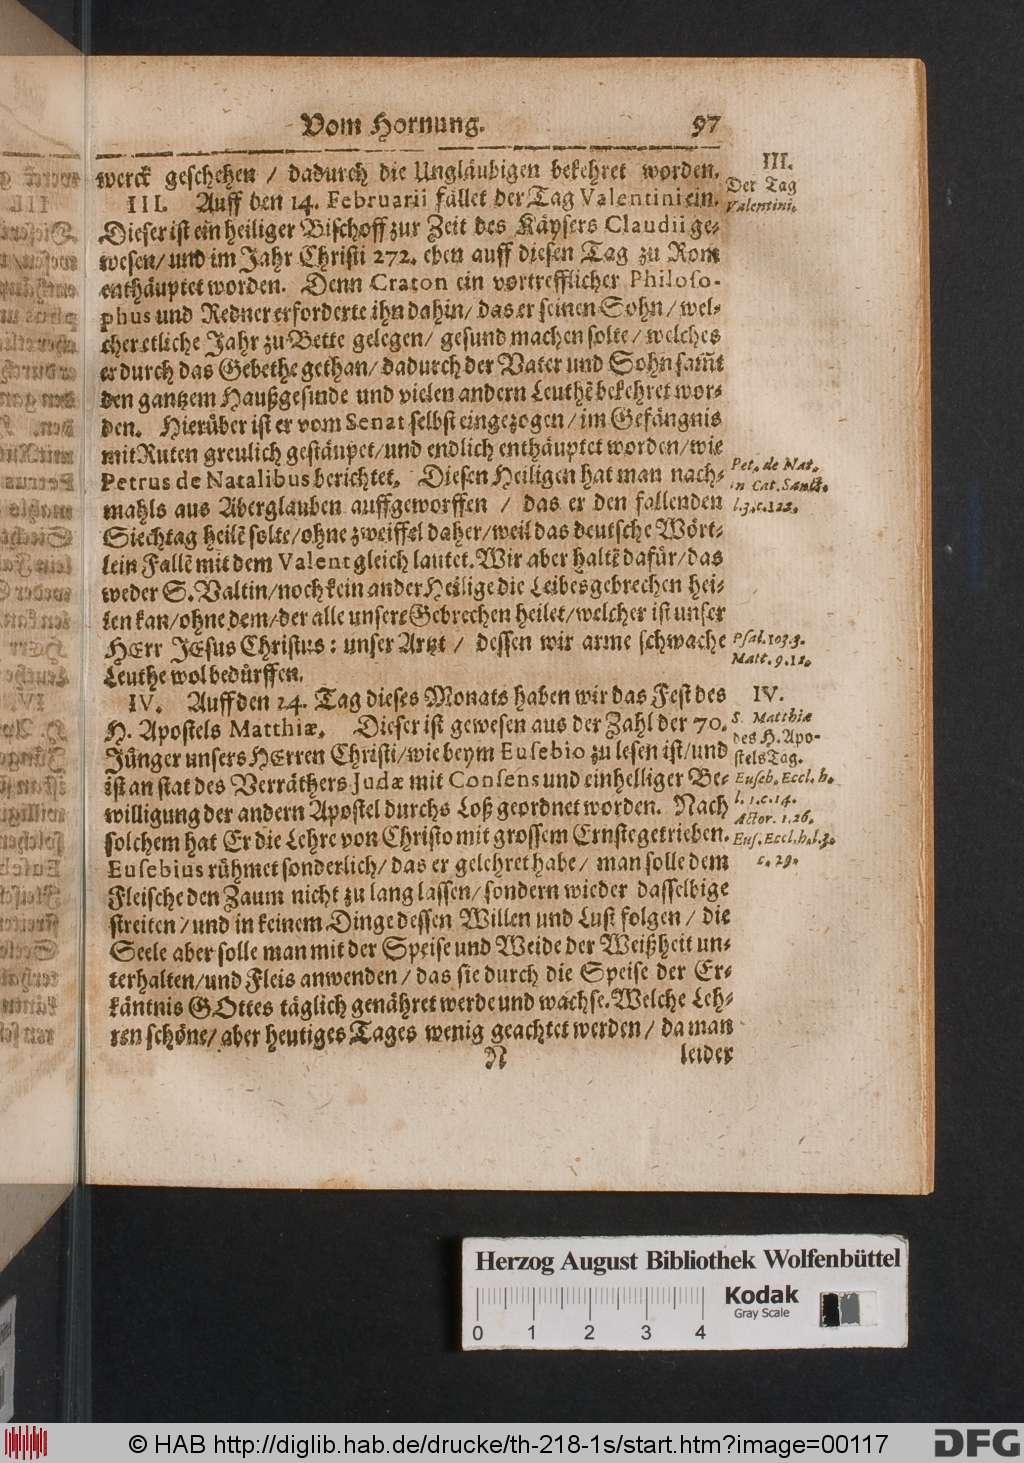 Vom Hornung. 97
werck geschehen / dadurch die Ungläubigen bekehret worden.
III. Auff den 14. Februarii fället der Tag Valentini ein.
Dieser ist ein heiliger Bischoff zur Zeit des Käysers Claudii ge-
wesen / und im Jahr Christi 272. eben auff diesen Tag zu Rom
enthäuptet worden. Denn Craton ein vortrefflicher Philoso-
phus und Redner erforderte ihn dahin / das er seinen Sohn / wel-
cher etliche Jahr zu Bette gelegen / gesund machen solte / welches
er durch das Gebethe gethan / dadurch der Vater und Sohn sam̃t
den gantzem Haußgesinde und vielen andern Leuthẽ bekehret wor-
den. Hierüber ist er vom Senat selbst eingezogen / im Gefängnis
mit Ruten greulich gestäupet / und endlich enthäuptet worden / wie
Petrus de Natalibus berichtet. Diesen Heiligen hat man nach-
mahls aus Aberglauben auffgeworffen / das er den fallenden
Siechtag heilẽ solte / ohne zweiffel daher / weil das deutsche Wört-
lein Fallẽ mit dem Valent gleich lautet. Wir aber haltẽ dafür / das
weder S. Valtin / noch kein ander Heilige die Leibesgebrechen hei-
len kan / ohne dem / der alle unsere Gebrechen heilet / welcher ist unser
HErr JEsus Christus: unser Artzt / dessen wir arme schwache
Leuthe wol bedürffen.
IV. Auff den 24. Tag dieses Monats haben wir das Fest des
H. Apostels Matthiæ. Dieser ist gewesen aus der Zahl der 70.
Jünger unsers HErren Christi / wie beym Eusebio zu lesen ist / und
ist an stat des Verräthers Judæ mit Consens und einhelliger Be-
willigung der andern Apostel durchs Loß geordnet worden. Nach
solchem hat Er die Lehre von Christo mit grossem Ernste getrieben.
Eusebius rühmet sonderlich / das er gelehret habe / man solle dem
Fleische den Zaum nicht zu lang lassen / sondern wieder dasselbige
streiten / und in keinem Dinge dessen Willen und Lust folgen / die
Seele aber solle man mit der Speise und Weide der Weißheit un-
terhalten / und Fleis anwenden / das sie durch die Speise der Er-
käntnis GOttes täglich genähret werde und wachse. Welche Leh-
ren schöne / aber heutiges Tages wenig geachtet werden / da man
N leider
III.
Der Tag
Valentini.
Pet. de Nat.
in Cat. Sanct.
l. 3. c. 122.
Psal. 103. 3.
Matt. 9. 12.
IV.
S. Matthiæ
des H. Apo-
stels Tag.
Euseb. Eccl. h.
l. 1. c. 14.
Actor. 1. 26.
Eus. Eccl. h. l. 3.
c. 29.
Herzog August Bibliothek Wolfenbüttel
Kodak
Gray Scale
0 1 2 3 4
© HAB http://diglib.hab.de/drucke/th-218-1s/start.htm?image=00117
DFG